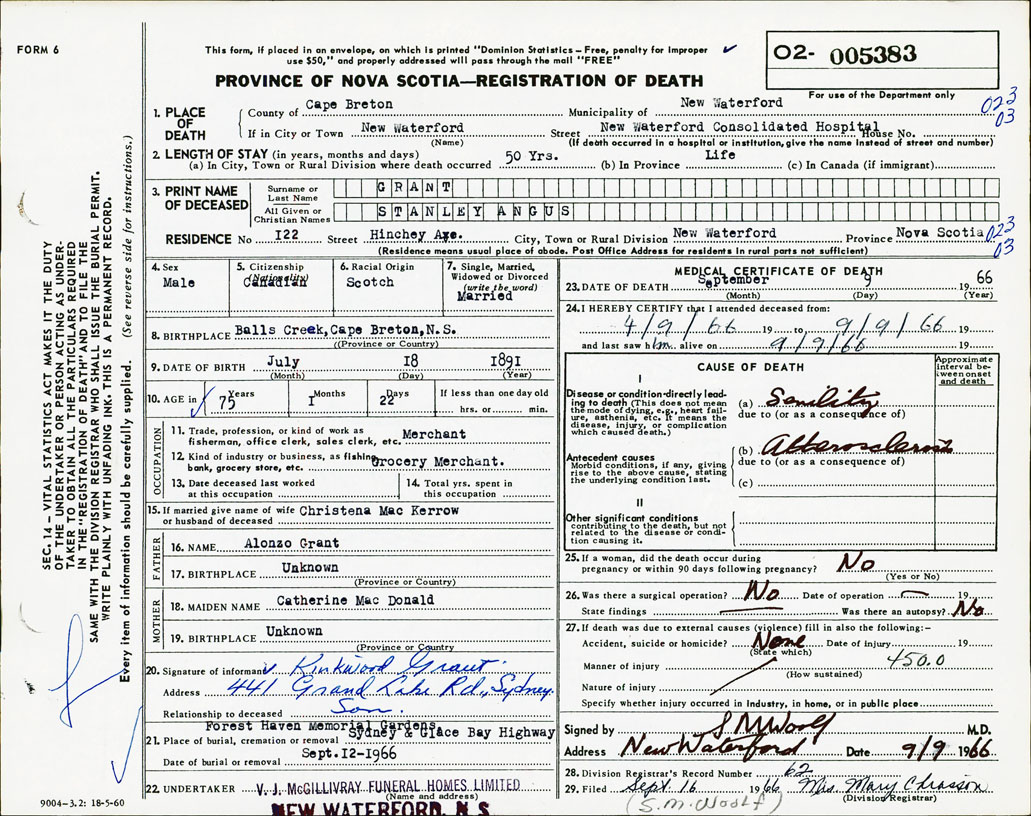 FORM 6
This form, if placed in an envelope, on which is printed "Dominion Statistics – Free, penalty for improper
use $50," and properly addressed will pass through the mail "FREE"
02- 005383
For use of the Department only
PROVINCE OF NOVA SCOTIA—REGISTRATION OF DEATH
023
03
1. PLACE OF DEATH
County of Cape Breton Municipality of New Waterford
If in City or Town New Waterford Street New Waterford Consolidated Hospital House No.
(Name) (If death occurred in a hospital or institution, give the name instead of street and number)
2. LENGTH OF STAY (in years, months and days)
(a) In City, Town or Rural Division where death occurred 50 Yrs. (b) In Province Life (c) In Canada (if immigrant)
3. PRINT NAME OF DECEASED
Surname or Last Name GRANT
All Given or Christian Names STANLEY ANGUS
RESIDENCE No 122 Street Hinchey Ave. City, Town or Rural Division New Waterford Province Nova Scotia
023
03
(Residence means usual place of abode. Post Office Address for residents in rural parts not sufficient)
4. Sex
Male
5. Citizenship
(Nationality)
Canadian
6. Racial Origin
Scotch
7. Single, Married,
Widowed or Divorced
(write the word)
Married
8. BIRTHPLACE Balls Creek, Cape Breton, N.S.
(Province or Country)
9. DATE OF BIRTH July 18 1891
(Month) (Day) (Year)
10. AGE in Years 75 Months 1 Days 22 If less than one day old
hrs. or min.
OCCUPATION
11. Trade, profession, or kind of work as
fisherman, office clerk, sales clerk, etc. Merchant
12. Kind of industry or business, as fishing,
bank, grocery store, etc. Grocery Merchant.
13. Date deceased last worked
at this occupation
14. Total yrs. spent in
this occupation
15. If married give name of wife
or husband of deceased Christena Mac Kerrow
FATHER
16. NAME Alonzo Grant
17. BIRTHPLACE Unknown
(Province or Country)
MOTHER
18. MAIDEN NAME Catherine Mac Donald
19. BIRTHPLACE Unknown
(Province or Country)
20. Signature of informant Kirkwood Grant
Address 441 Grand Lake Rd., Sydney.
Relationship to deceased Son.
Forest Haven Memorial Gardens
21. Place of burial, cremation or removal Sydney & Glace Bay Highway
Date of burial or removal Sept.12-1966
22. UNDERTAKER V. J. McGILLIVRAY FUNERAL HOMES LIMITED
(Name and address)
NEW WATERFORD, N.S.
MEDICAL CERTIFICATE OF DEATH
23. DATE OF DEATH September 9 1966
(Month) (Day) (Year)
24. I HEREBY CERTIFY that I attended deceased from:
4/9/66 19 to 9/9/66 19
and last saw him alive on 9/9/66 19
CAUSE OF DEATH
Approximate
interval be-
tween onset
and death
I
Disease or condition-directly lead-
ing to death (This does not mean
the mode of dying, e.g., heart fail-
ure, asthenia, etc. It means the
disease, injury, or complication
which caused death.)
(a) Senility
due to (or as a consequence of)
Antecedent causes
Morbid conditions, if any, giving
rise to the above cause, stating
the underlying condition last.
(b) Atherosclerosis
due to (or as a consequence of)
(c)
II
Other significant conditions
contributing to the death, but not
related to the disease or condi-
tion causing it.
25. If a woman, did the death occur during
pregnancy or within 90 days following pregnancy? No
(Yes or No)
26. Was there a surgical operation? No Date of operation 19
State findings Was there an autopsy? No
27. If death was due to external causes (violence) fill in also the following:–
Accident, suicide or homicide? None Date of injury 19
(State which)
450.0
Manner of injury
(How sustained)
Nature of injury
Specify whether injury occurred in Industry, in home, or in public place
Signed by S M Woolf M.D.
Address New Waterford Date 9/9 1966
28. Division Registrar's Record Number 62
29. Filed Sept. 16 1966 Mrs. Mary Chiasson
(Division Registrar)
(S.M. Woolf)
SEC. 14 – VITAL STATISTICS ACT MAKES IT THE DUTY
OF THE UNDERTAKER OR PERSON ACTING AS UNDER-
TAKER TO OBTAIN ALL THE PARTICULARS REQUIRED
IN THE "REGISTRATION OF DEATH" AND TO FILE THE
SAME WITH THE DIVISION REGISTRAR WHO SHALL ISSUE THE BURIAL PERMIT.
WRITE PLAINLY WITH UNFADING INK. THIS IS A PERMANENT RECORD.
Every item of information should be carefully supplied. (See reverse side for instructions.)
9004-3.2: 18-5-60